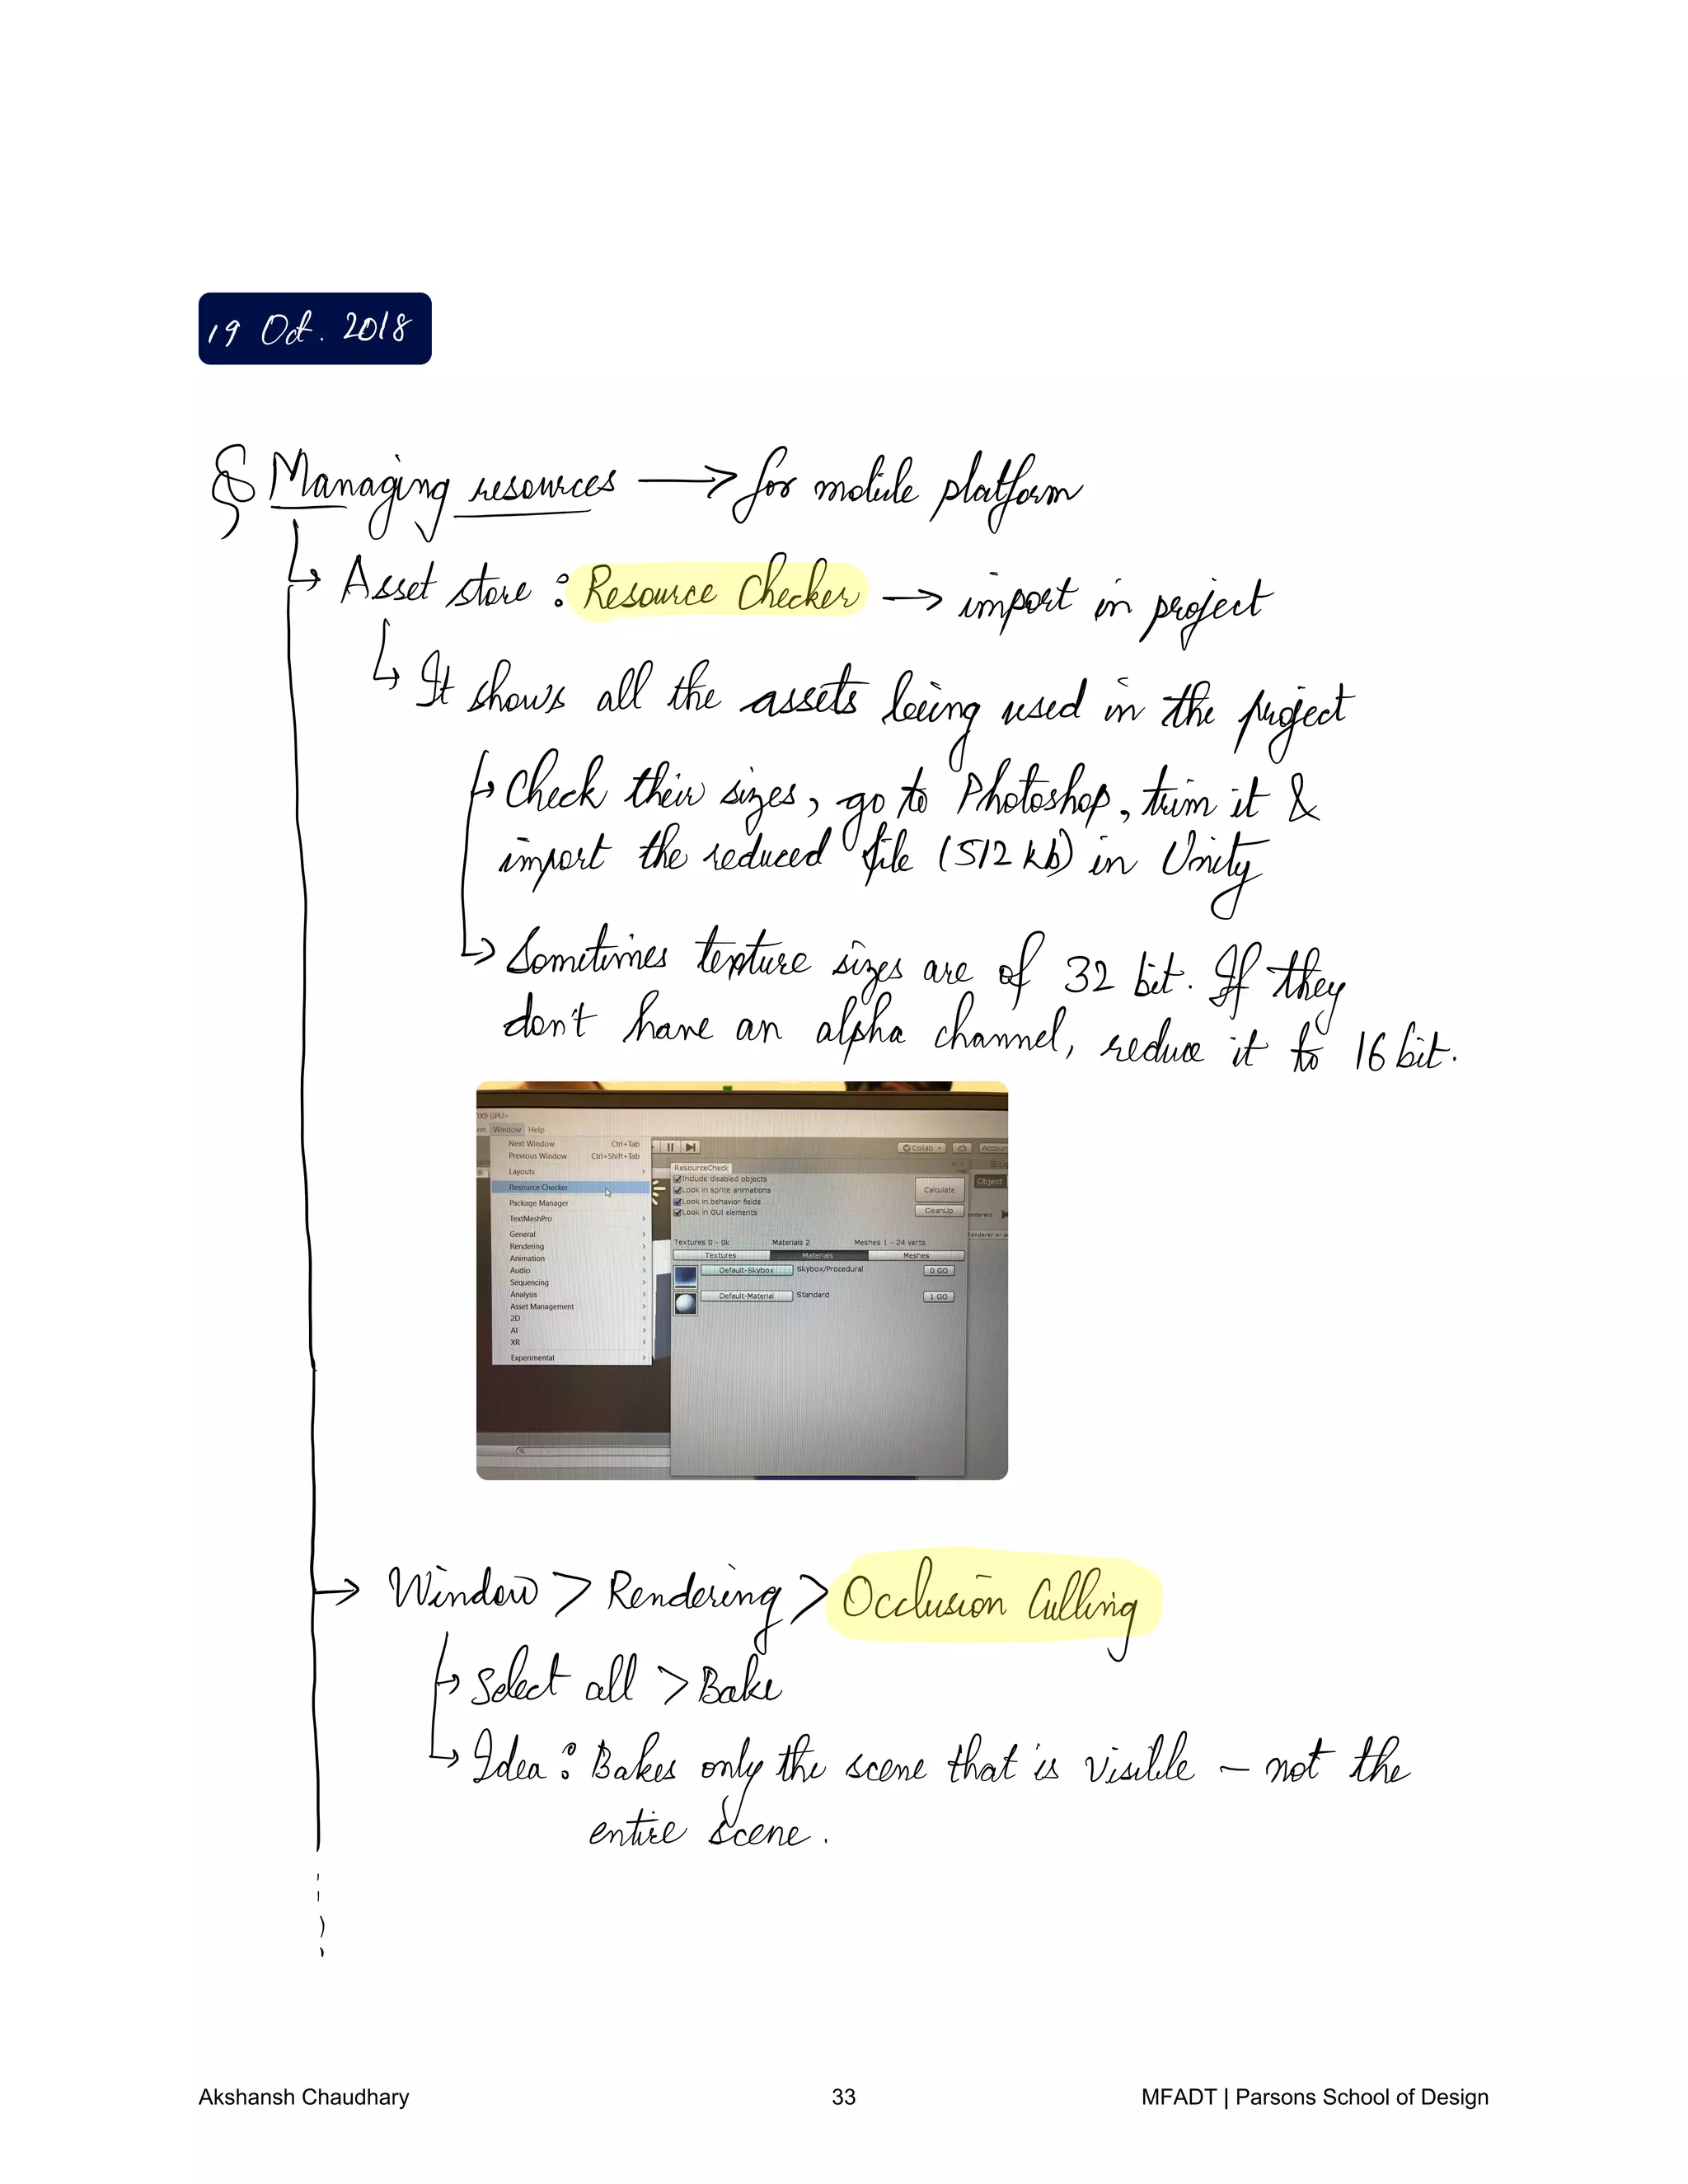 19 Oct. 2018
§ Managing resources → for mobile platform
↳ Asset store : Resource Checker → import in project
↳ It shows all the assets being used in the project
↳ Check their sizes, go to Photoshop, trim it &
import the reduced file (512 kb) in Unity
↳ Sometimes texture sizes are of 32 bit. If they
don't have an alpha channel, reduce it to 16 bit.
DX9 GPU>
Window Help
Next Window Ctrl+Tab
Previous Window Ctrl+Shift+Tab
Layouts >
Resource Checker
Package Manager
TextMeshPro >
General >
Rendering >
Animation >
Audio >
Sequencing >
Analysis >
Asset Management >
2D >
AI >
XR >
Experimental >
Collab
Accoun
Object
ResourceCheck
Include disabled objects
Look in sprite animations
Look in behavior fields
Look in GUI elements
Calculate
CleanUp
Textures 0 - 0k Materials 2 Meshes 1 - 24 verts
Textures Materials Meshes
Default-Skybox Skybox/Procedural 0 GO
Default-Material Standard 1 GO
→ Window > Rendering > Occlusion Culling
↳ Select all > Bake
↳ Idea : Bakes only the scene that is visible – not the
entire scene.
Akshansh Chaudhary 33 MFADT | Parsons School of Design